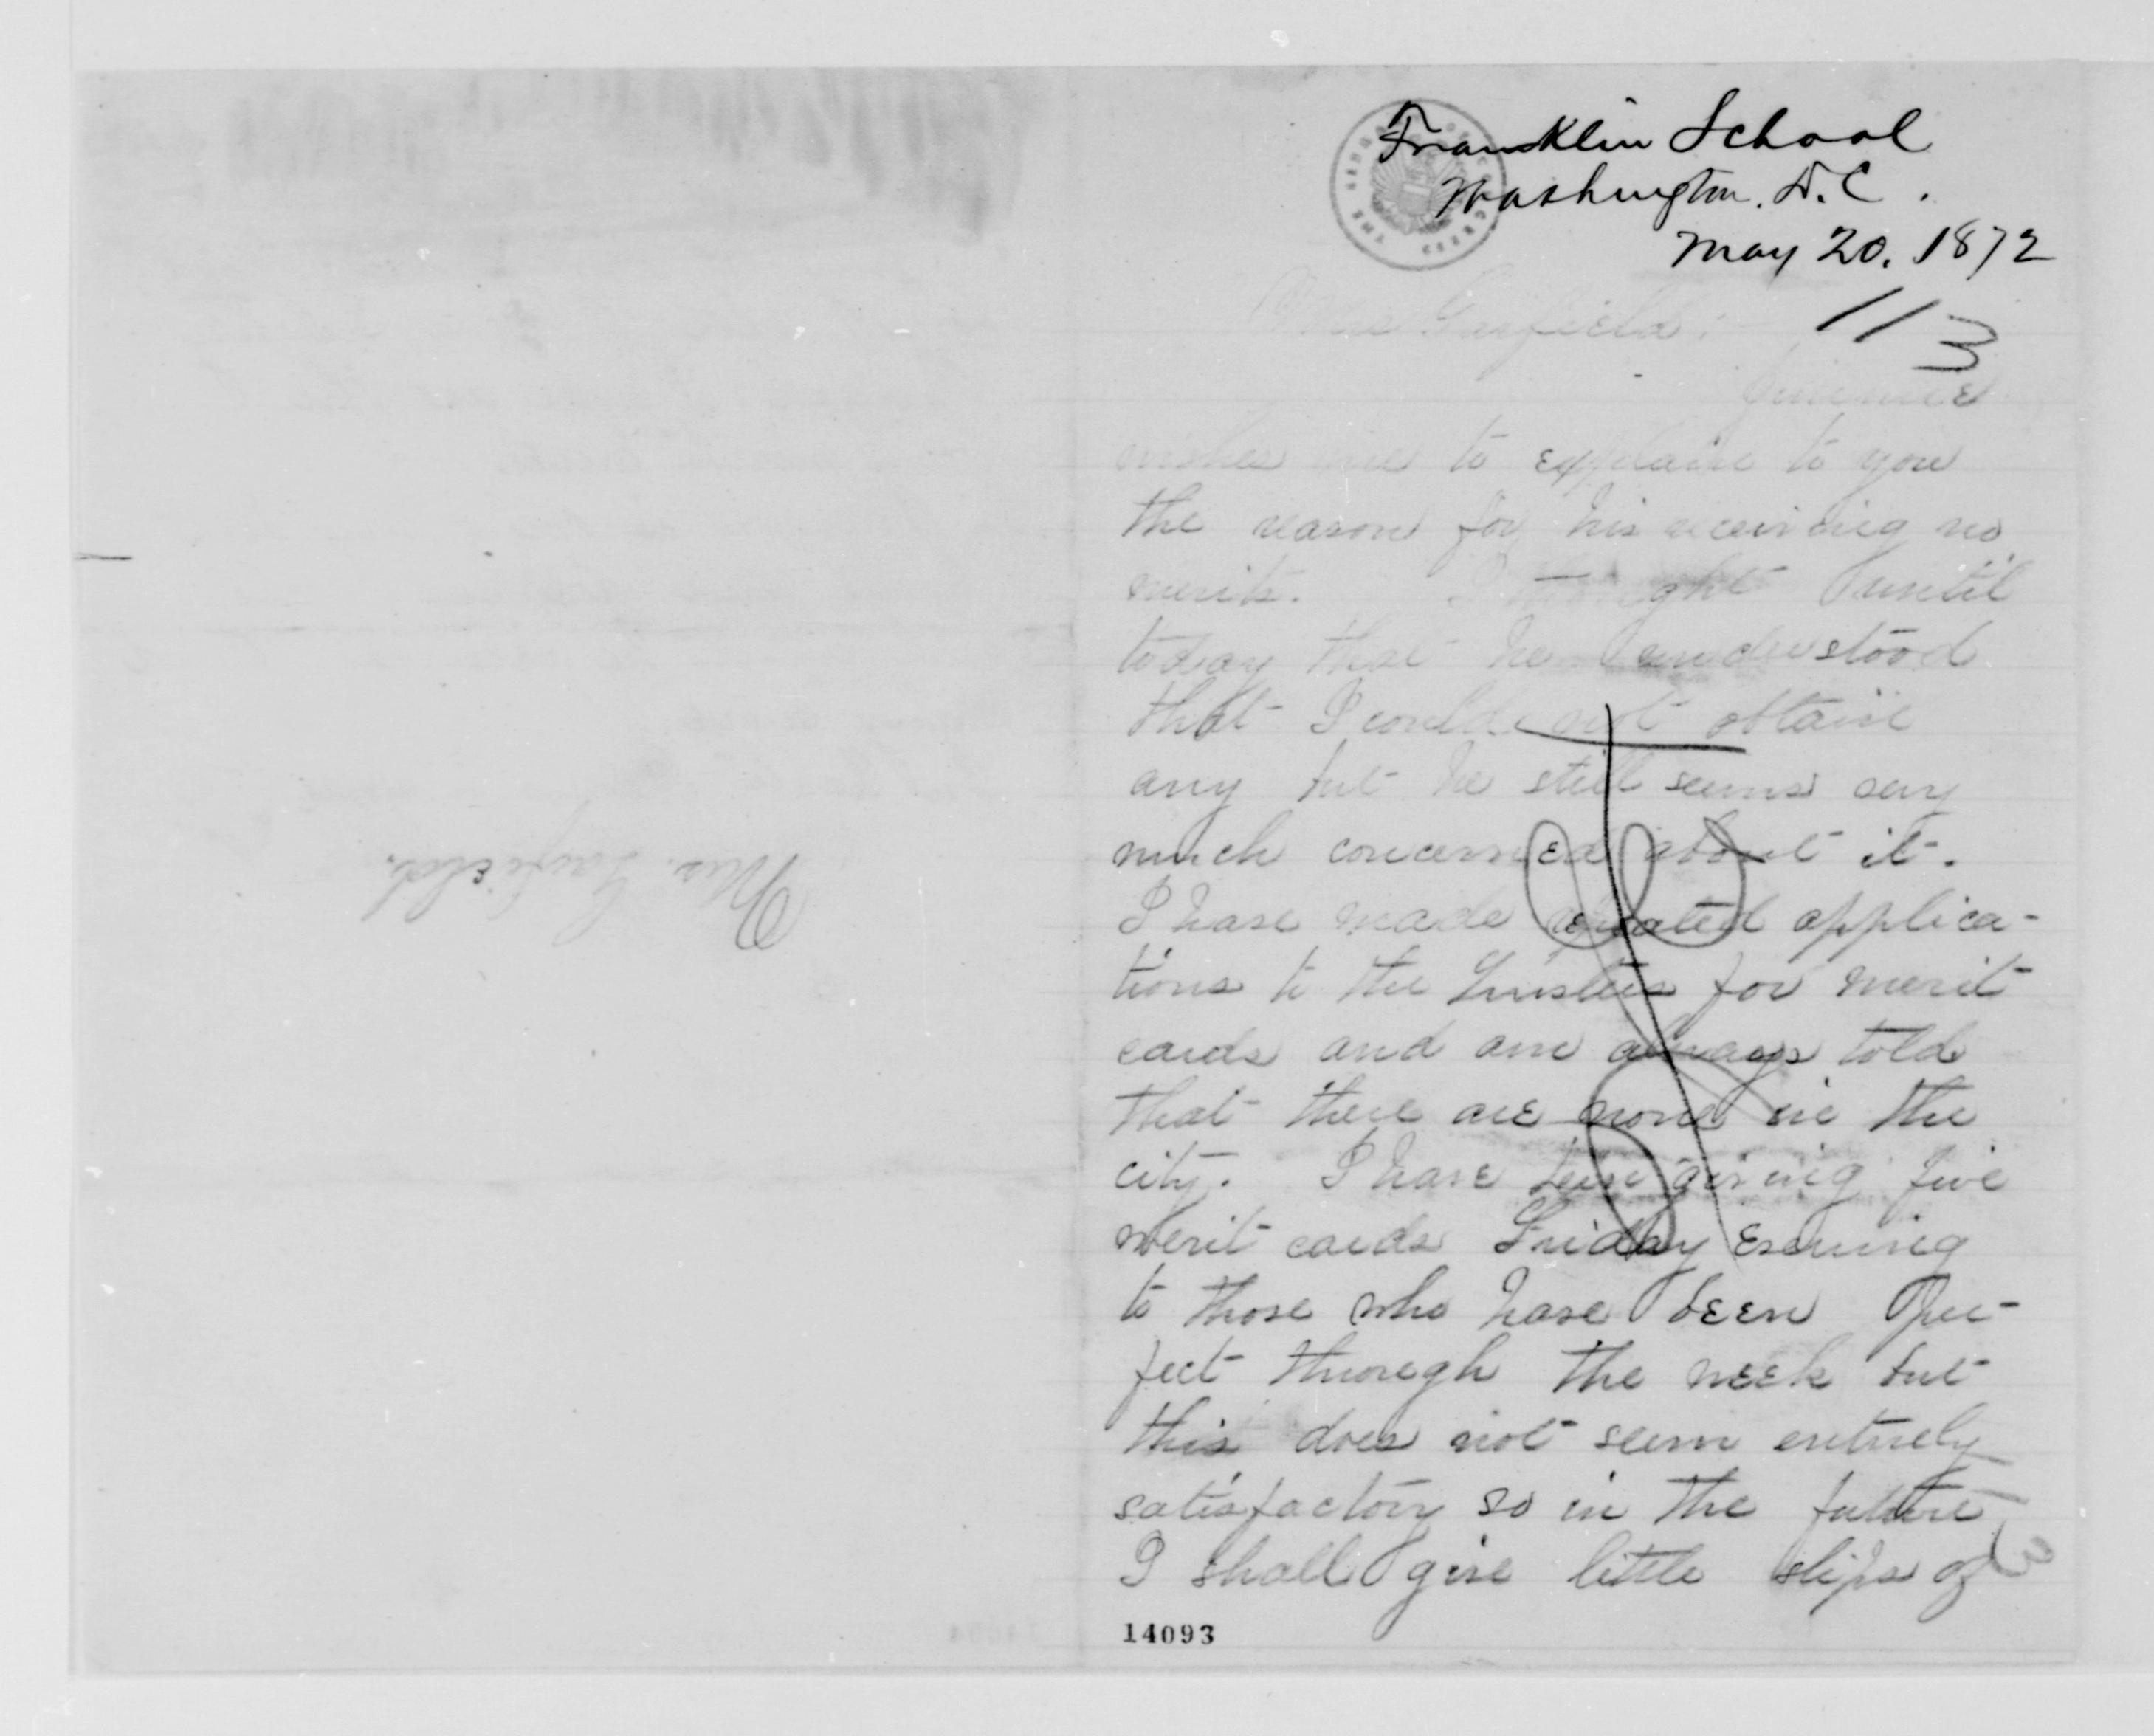 Franklin School
Washington. D.C.
May 20. 1872
113
Mrs Garfield:
Jimmie
wishes me to explain to you
the reason for his receiving no
merits. I thought until
today that he understood
that I could not obtain
any but he still seems very
much concerned about it.
I have made repeated applica-
tions to the Trustees for merit
cards and am always told
that there are none in the
city. I have been giving five
merit cards Friday evening
to those who have been per-
fect through the week but
this does not seem entirely
satisfactory so in the future
I shall give little slips of
14093
Mrs. Garfield.